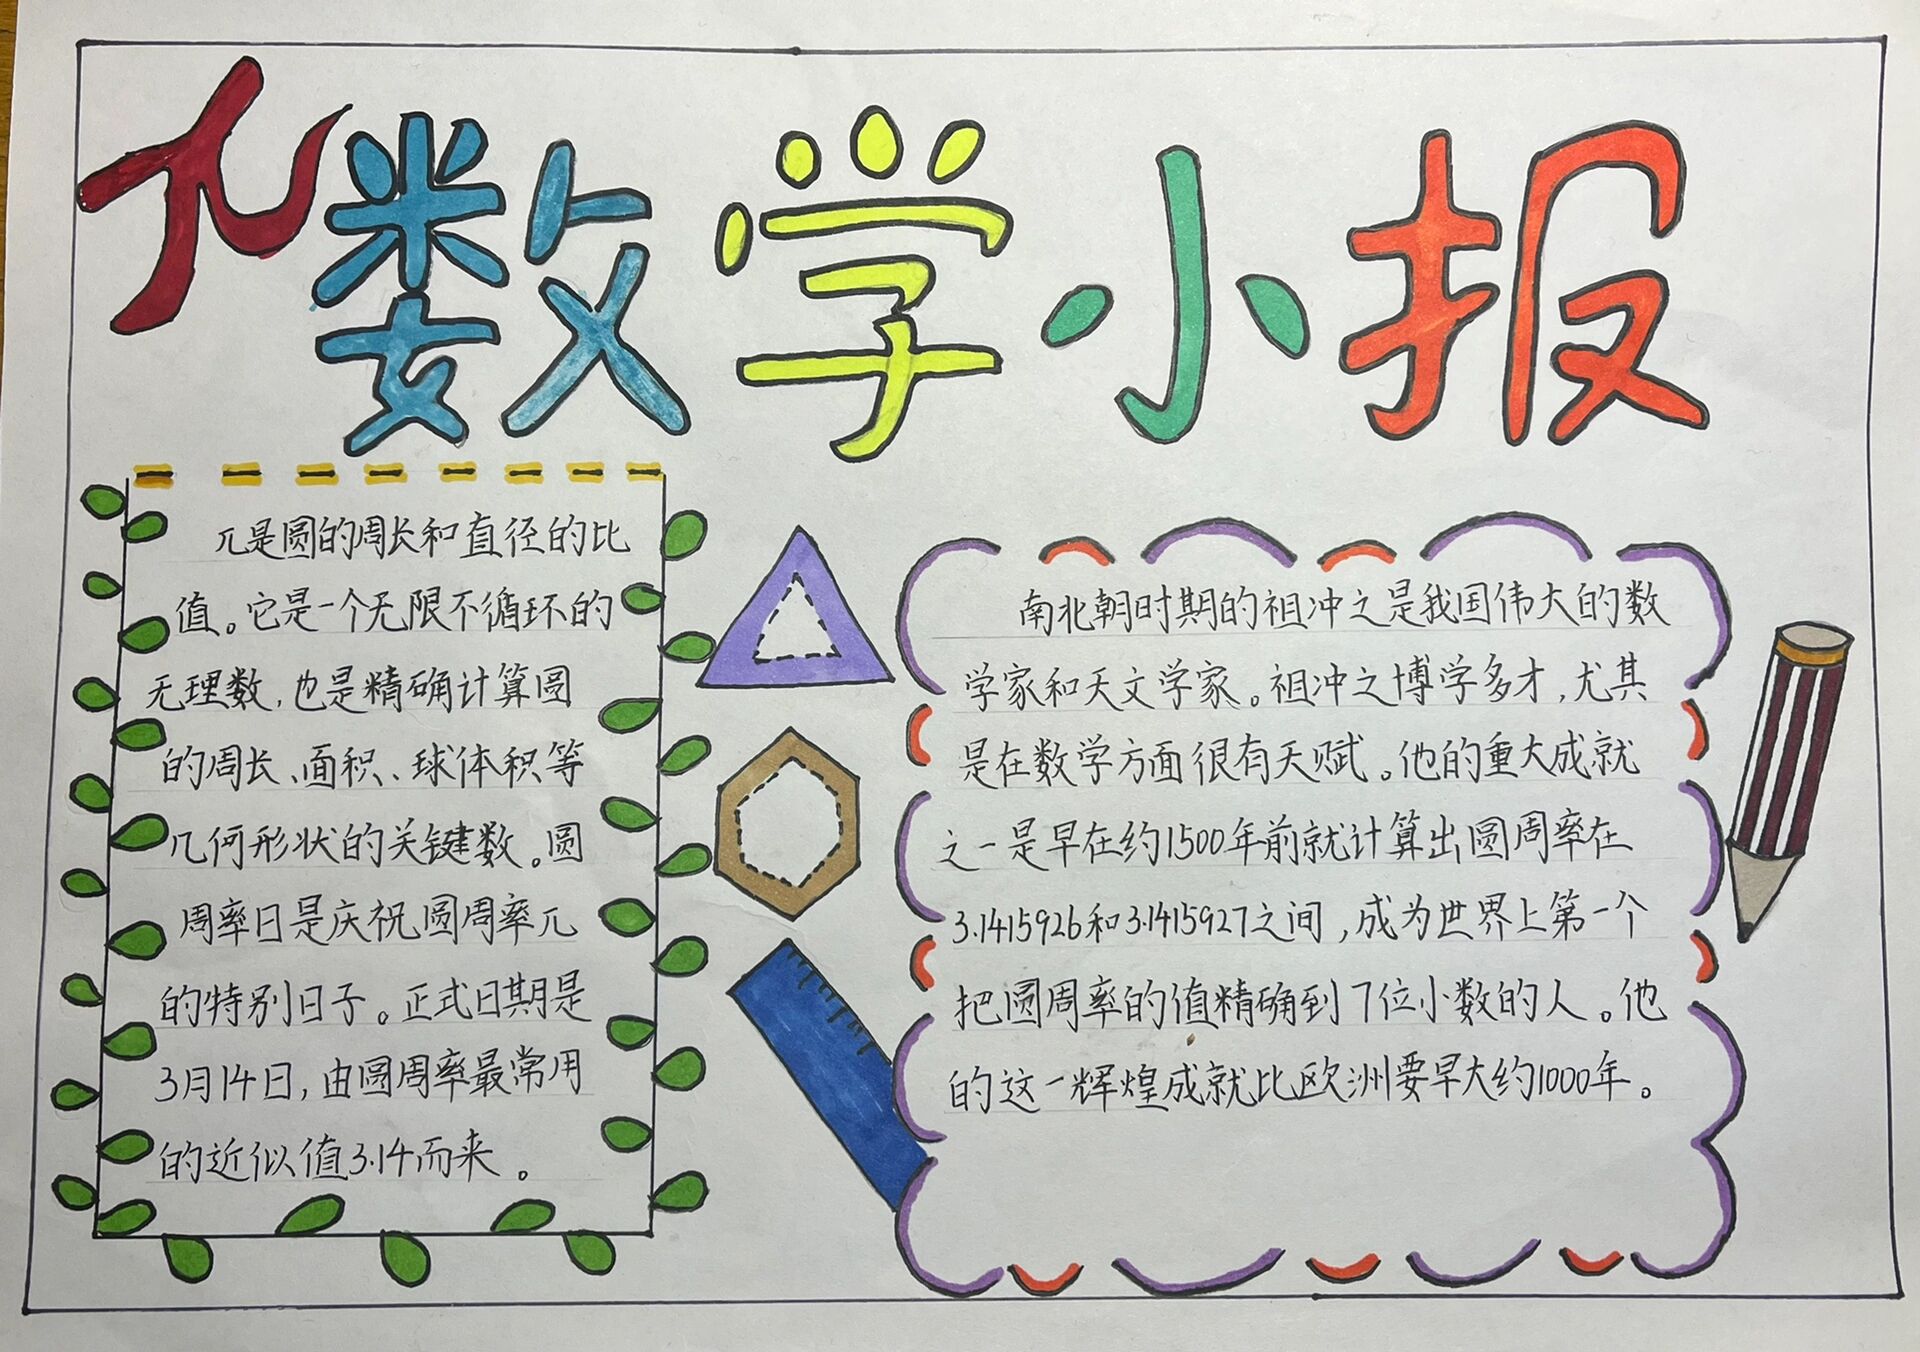 π数学小报
π是圆的周长和直径的比
值。它是一个无限不循环的
无理数,也是精确计算圆
的周长、面积、球体积等
几何形状的关键数。圆
周率日是庆祝圆周率π
的特别日子。正式日期是
3月14日,由圆周率最常用
的近似值3.14而来。
南北朝时期的祖冲之是我国伟大的数
学家和天文学家。祖冲之博学多才,尤其
是在数学方面很有天赋。他的重大成就
之一是早在约1500年前就计算出圆周率在
3.1415926和3.1415927之间,成为世界上第一个
把圆周率的值精确到7位小数的人。他
的这一辉煌成就比欧洲要早大约1000年。